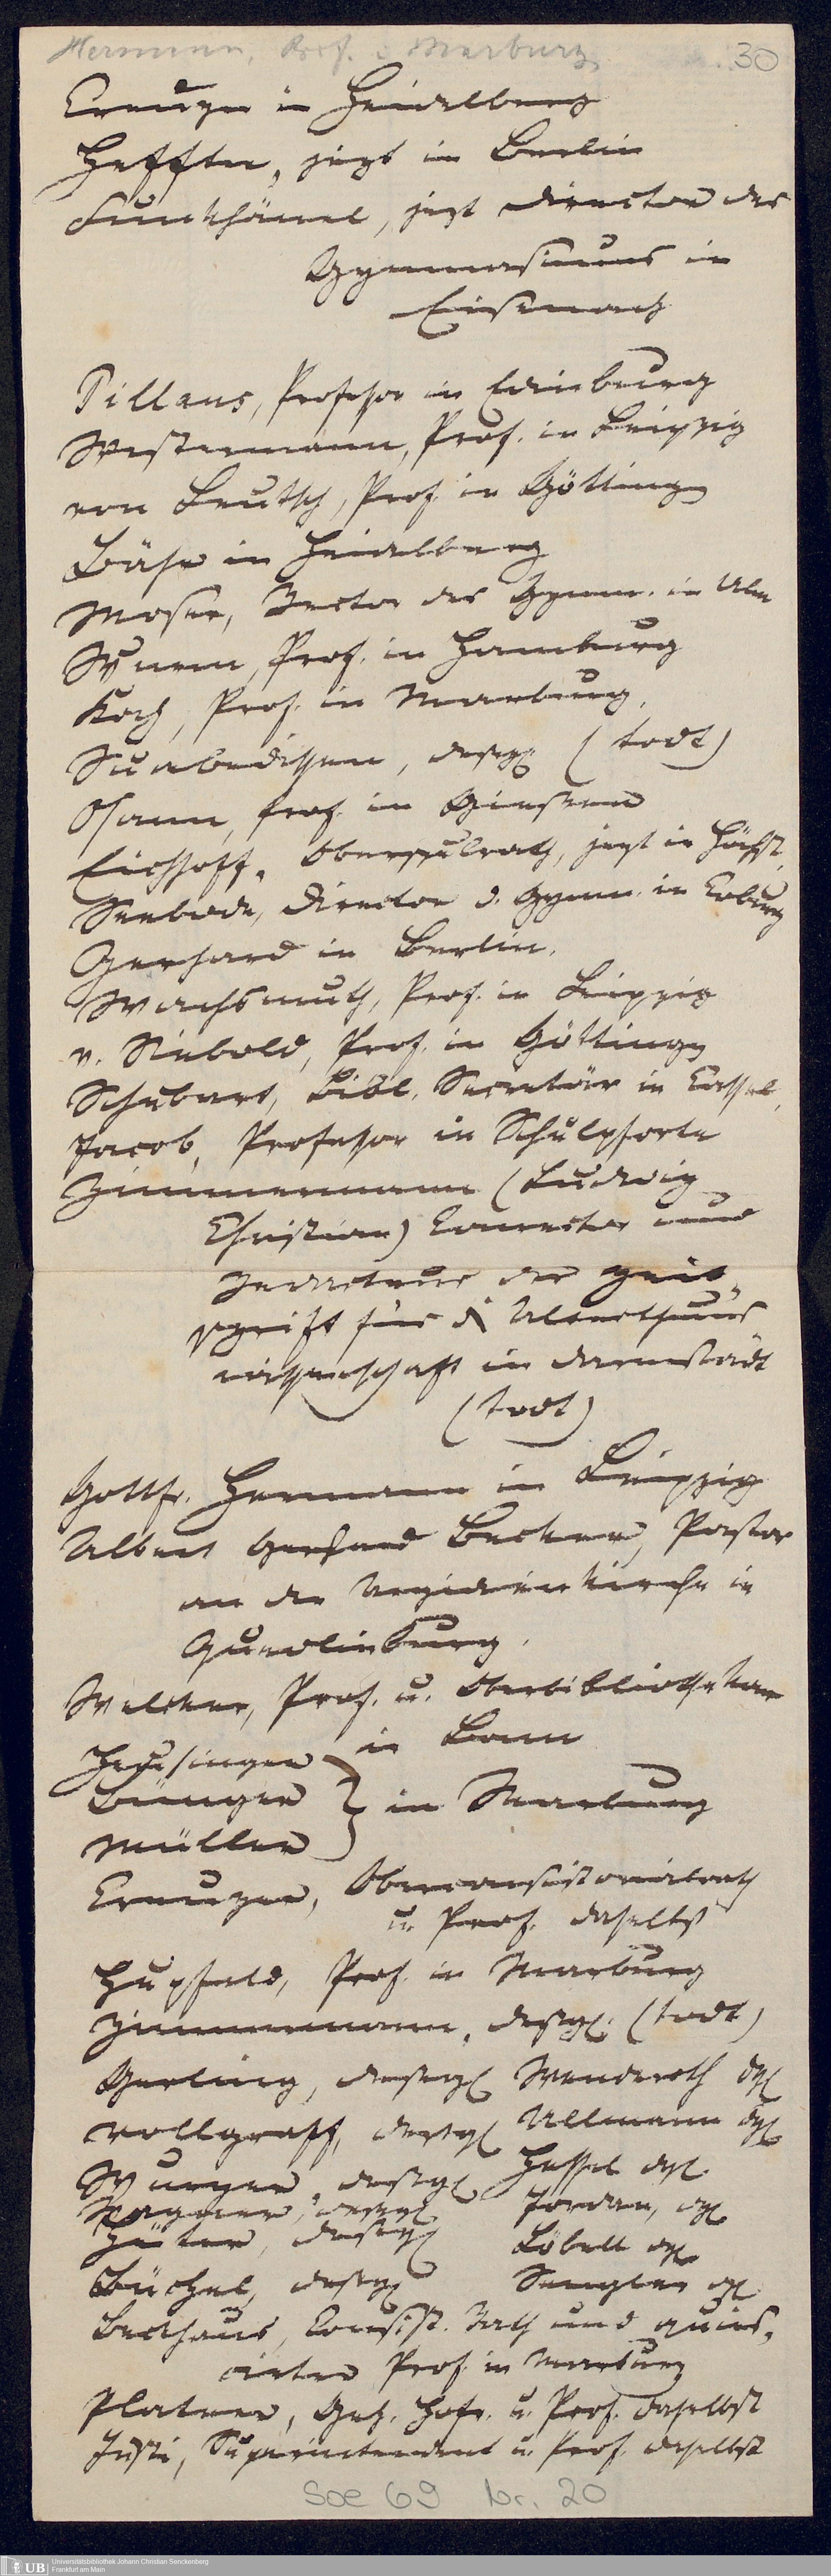 Hermann, Prof. in Marburg
30
Creuzer in Heidelberg
Heffter, jezt in Berlin
Funkhänel, jezt Director des
Gymnasiums in
Eisenach
Pillans, Professor in Edinburg
Westermann, Prof. in Leipzig
von Leutsch, Prof. in Göttingen
Bähr in Heidelberg
Moser, Rector des Gymn. in Ulm
Wurm, Prof. in Hamburg
Koch, Prof. in Marburg,
Suabedissen, desgl. (todt)
Osann, Prof. in Giessen
Eichhoff, Oberschulrath, jezt in Höchst,
Seebode, Director d. Gymn. in Coburg
Gerhard in Berlin.
Wachsmuth, Prof. in Leipzig
v. Siebold, Prof. in Göttingen
Schubart, Bibl. Secretär in Cassel,
Jacob, Professor in Schulpforte
Zimmermann (Ludwig
Christian) Conrector und
Redacteur der Zeit-
schrift für die Alterthums
wissenschaft in Darmstadt
(todt)
Gottfr. Hermann in Leipzig
Albert Gerhard Becker, Pastor
an der Aegidienkirche in
Quedlinburg.
Welcker, Prof. u. Oberbibliothekar
in Bonn
Heusinger
Bünger } in Marburg
Müller
Creuzer, Oberconsistorialrath
u. Prof. daselbst
Hupfeld, Prof. in Marburg
Zimmermann, desgl. (todt)
Gerling, desgl. Wenderoth dgl.
Vollgraff, desgl. Ullmann dgl.
Wurzer, desgl. Hessel dgl.
Wagner, desgl. Jordan, dgl.
Hüter, desgl. Löbell dgl.
Büchel, desgl. Sengler dgl.
Beckhaus, Consist. Rath und quies-
cirter Prof. in Marburg
Platner, Geh. Hofr. u. Prof. daselbst
Justi, Superintendent u. Prof. daselbst
Soe 69 Nr. 20
UB Universitätsbibliothek Johann Christian Senckenberg
Frankfurt am Main